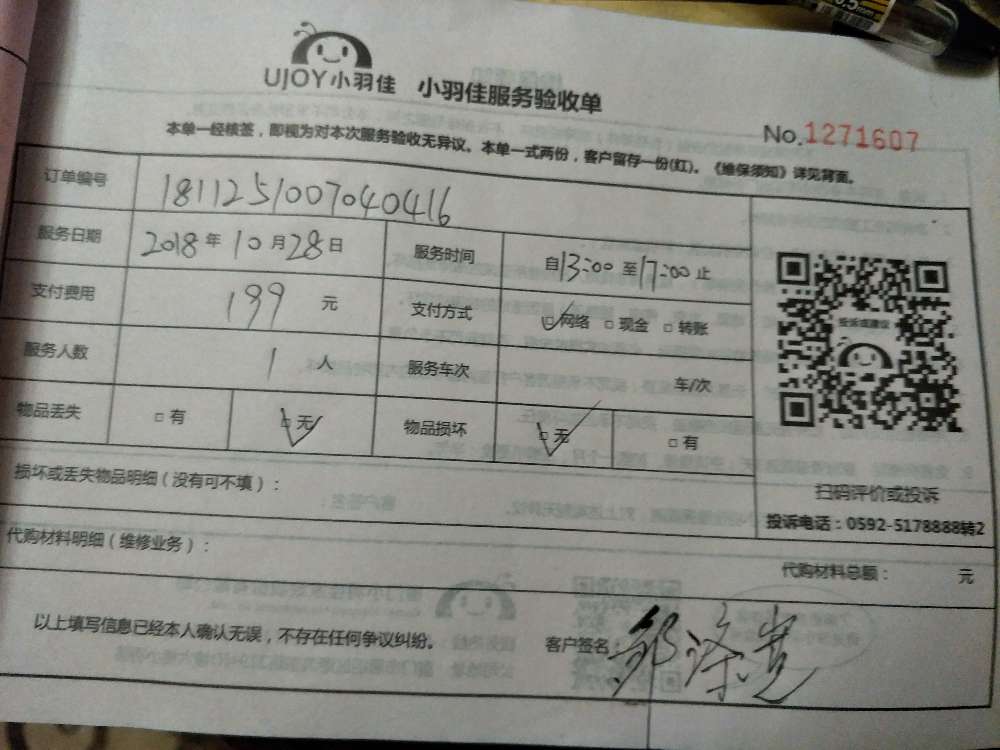 UJOY小羽佳 小羽佳服务验收单
No.1271607
本单一经核签，即视为对本次服务验收无异议。本单一式两份，客户留存一份(红)。《维保须知》详见背面。
订单编号 1811251007040416
服务日期 2018年10月28日 服务时间 自13:00至17:00止
支付费用 199元 支付方式 ☑网络 □现金 □转账
服务人数 1人 服务车次 车/次
物品丢失 □有 ☑无 物品损坏 ☑无 □有
投诉或建议
扫码评价或投诉
投诉电话：0592-5178888转2
损坏或丢失物品明细（没有可不填）：
代购材料明细（维修业务）：
代购材料总额： 元
以上填写信息已经本人确认无误，不存在任何争议纠纷。
客户签名：